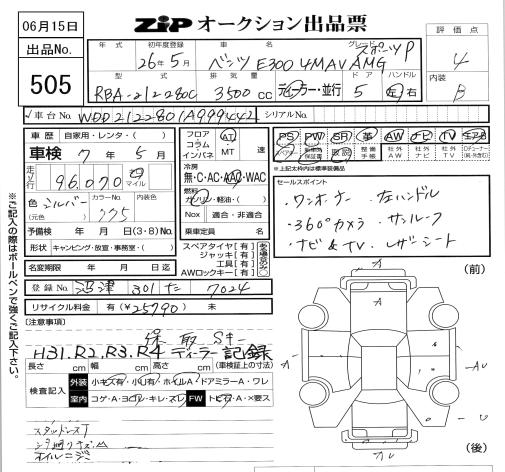 06月15日
出品No.
505
ZIP オークション出品票
年式 初年度登録 車名 グレード
26年5月 ベンツ E300 4MAV AMG スポーツP
型式 排気量 ドア ハンドル
RBA-212280C 3500cc ディーラー・並行 5 左 右
評価点
4
内装
B
車台No. WDD2122801A999442 シリアルNo.
車歴 自家用・レンタ・( )
車検 7年 5月
走行 96,070 km マイル
色 シルバー (元色) カラーNo. 775 内装色
予備検 年 月 日(3・8)No.
形状 キャンピング・放宣・事務室・( )
名変期限 年 月 日迄
登録No. 沼津 301 な 7024
リサイクル料金 有(¥25790) 未
フロア コラム インパネ AT MT 速
冷房
無・C・AC・AAC・WAC
燃料
ガソリン・軽油・( )
Nox 適合・非適合
乗車定員 名
スペアタイヤ[有]
ジャッキ[有]
工具[有]
AWロックキー[有]
PS PW SR 革 AW ナビ TV エアB
スペアキー 新車時保証書 取説 整備手帳 社外AW 社外ナビ 社外TV
※上記太わ内は標準装備品
セールスポイント
・ワンオーナー ・左ハンドル
・360°カメラ ・サンルーフ
・ナビ&TV ・レザーシート
[注意事項]
保 取 Sキー
H31.R2.R3.R4 ディーラー記録
長さ cm 幅 cm 高さ cm (車検証上の寸法)
検査記入 外装 小キズ有・小凹有・ホイルA・ドアミラーA・ワレ
室内 コゲ・A・ヨゴレ・キレ・スレ FW トビ石・A・X要ス
スタッドレスT
オイルニジミ
(前)
(後)
A
A
A
AU
A
U
A
※ご記入の際はボールペンで強くご記入下さい。